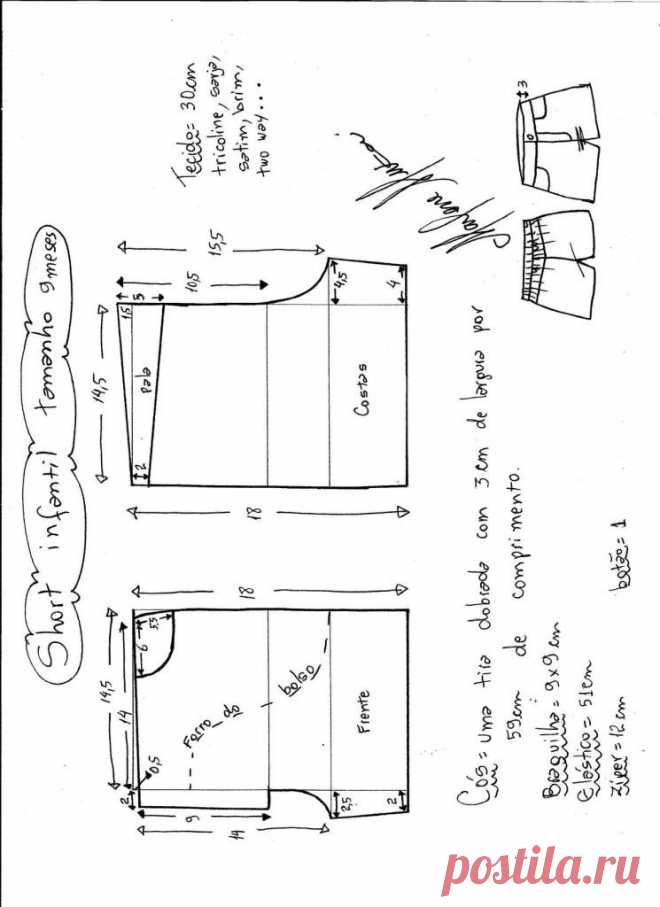 Short infantil tamanho 9 meses
14,5
14
2
0,5
9
14
6
5,5
18
Forro do bolso
Frente
2,5
2
14,5
1,5
5
10,5
15,5
2
pala
18
Costas
4,5
4
Tecido= 30cm
tricoline, sarja,
satim, brim,
two way...
Marlene
Mukai
Cós= uma tira dobrada com 3 cm de largura por
59cm de comprimento.
Braguilha= 9x9 cm
Elástico= 51cm
Zíper= 12 cm
botão= 1
3
postila.ru